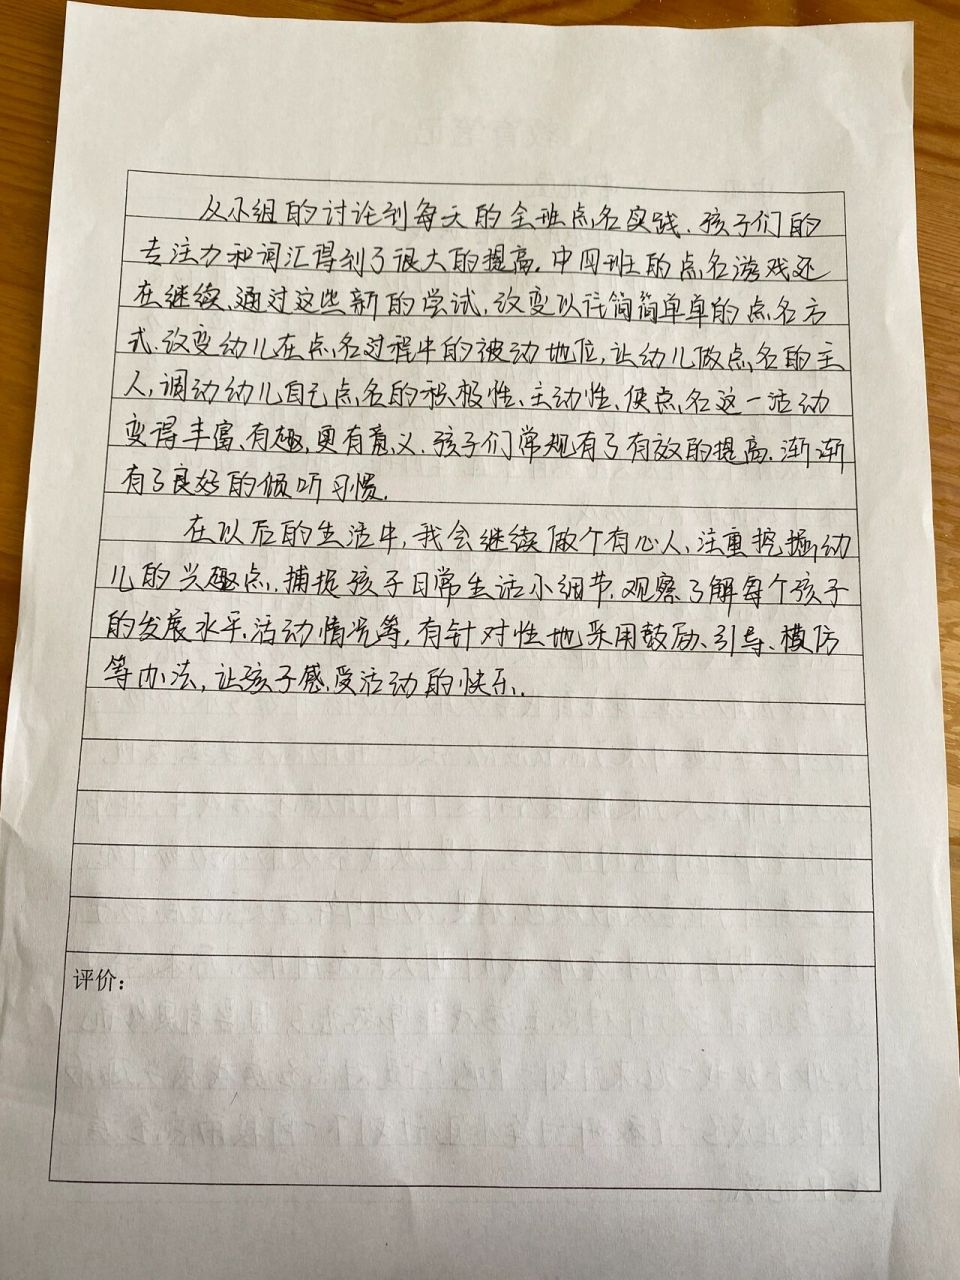 从小组的讨论到每天的全班点名实践.孩子们的
专注力和词汇得到了很大的提高.中四班的点名游戏还
在继续,通过这些新的尝试,改变以往简简单单的点名方
式.改变幼儿在点名过程中的被动地位,让幼儿做点名的主
人,调动幼儿自己点名的积极性、主动性、使点名这一活动
变得丰富、有趣,更有意义.孩子们常规有了有效的提高.渐渐
有了良好的倾听习惯.
在以后的生活中,我会继续做个有心人,注重挖掘幼
儿的兴趣点.捕捉孩子日常生活小细节.观察了解每个孩子
的发展水平.活动情况等,有针对性地采用鼓励、引导、模仿
等办法,让孩子感受活动的快乐.
评价：